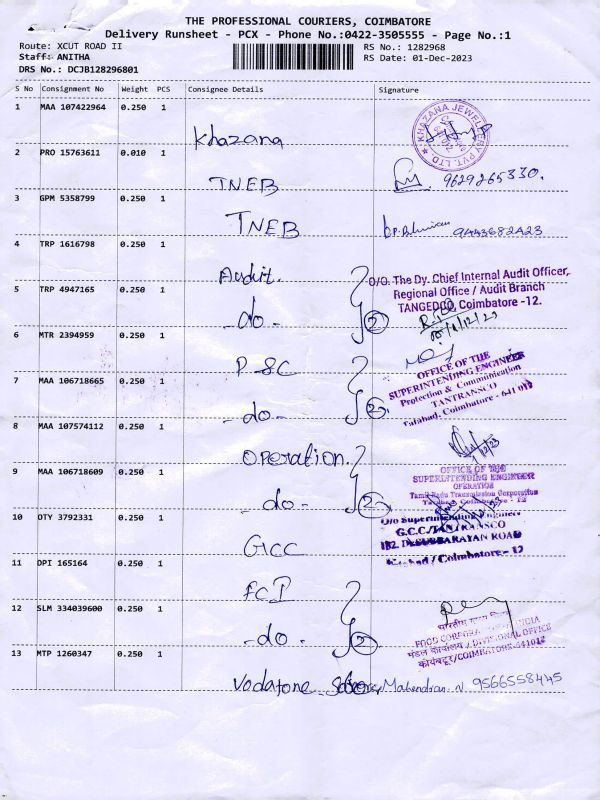 THE PROFESSIONAL COURIERS, COIMBATORE
Delivery Runsheet - PCX - Phone No.:0422-3505555 - Page No.:1
Route: XCUT ROAD II
RS No.: 1282968
Staff: ANITHA
RS Date: 01-Dec-2023
DRS No.: DCJB128296801
S No Consignment No Weight PCS Consignee Details Signature
1 MAA 107422964 0.250 1
Khazana
KHAZANA JEWELLERY PVT. LTD
2 PRO 15763611 0.010 1
TNEB
9629265330.
3 GPM 5358799 0.250 1
TNEB
9443682423
4 TRP 1616798 0.250 1
Audit.
O/O. The Dy. Chief Internal Audit Officer,
Regional Office / Audit Branch
TANGEDCO, Coimbatore -12.
5 TRP 4947165 0.250 1
-do-
2
6 MTR 2394959 0.250 1
P&C
OFFICE OF THE
SUPERINTENDING ENGINEER
Protection & Communication
TANTRANSCO
Tatabad, Coimbatore - 641 012
7 MAA 106718665 0.250 1
-do-
2
8 MAA 107574112 0.250 1
Operation.
OFFICE OF THE
SUPERINTENDING ENGINEER
OPERATION
Tamil Nadu Transmission Corporation
9 MAA 106718609 0.250 1
-do-
2
10 OTY 3792331 0.250 1
GCC
O/o Superintending Engineer
G.C.C/TANTRANSCO
182. DESUBBARAYAN ROAD
Tatabad / Coimbatore - 12
11 DPI 165164 0.250 1
FCI
12 SLM 334039600 0.250 1
-do-
2
भारतीय खाद्य निगम
FOOD CORPORATION OF INDIA
मंडल कार्यालय / DIVISIONAL OFFICE
कोयंबटूर/COIMBATORE-641012
13 MTP 1260347 0.250 1
Vodafone
Mahendran. N 9566558445